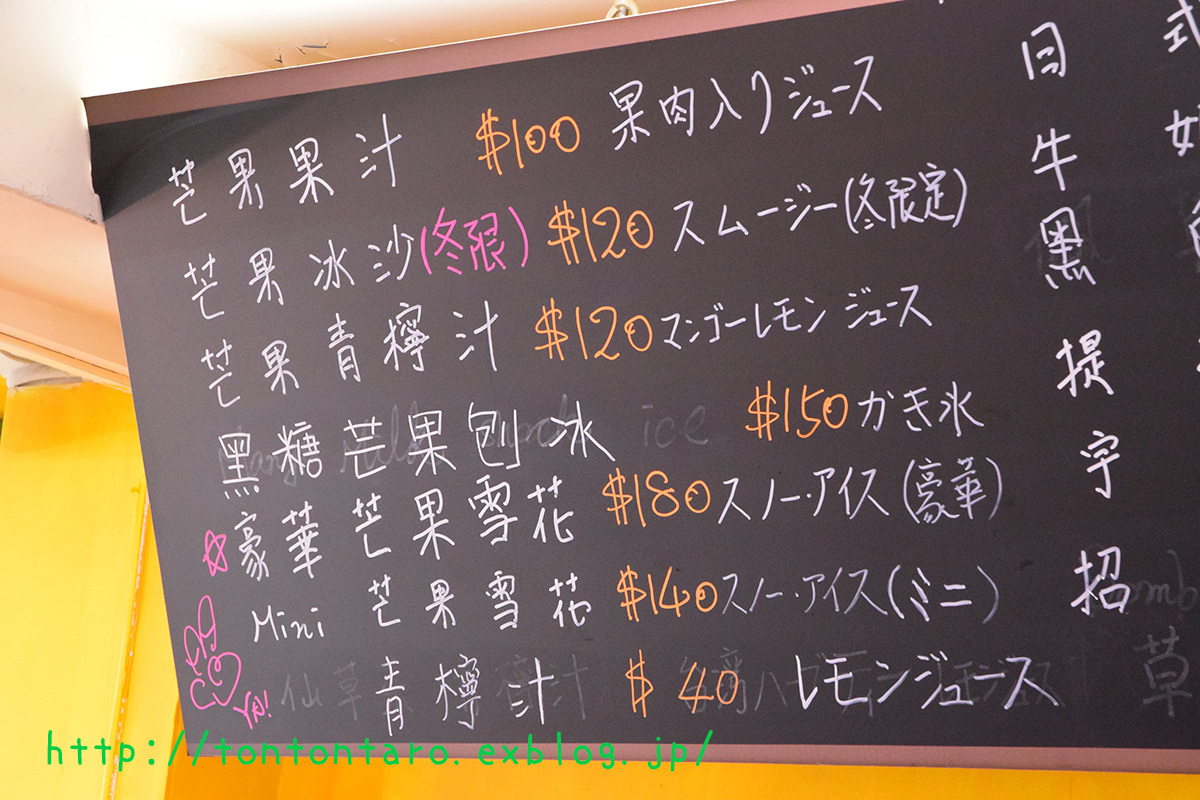 芒果果汁 $100 果肉入りジュース
芒果冰沙(冬限) $120 スムージー(冬限定)
芒果青檸汁 $120 マンゴーレモンジュース
黑糖芒果刨冰 $150 かき氷
豪華芒果雪花 $180 スノー・アイス(豪華)
Mini 芒果雪花 $140 スノー・アイス(ミニ)
青檸汁 $40 レモンジュース
YA!
日牛黑提宇招
式
草
http://tontontaro.exblog.jp/